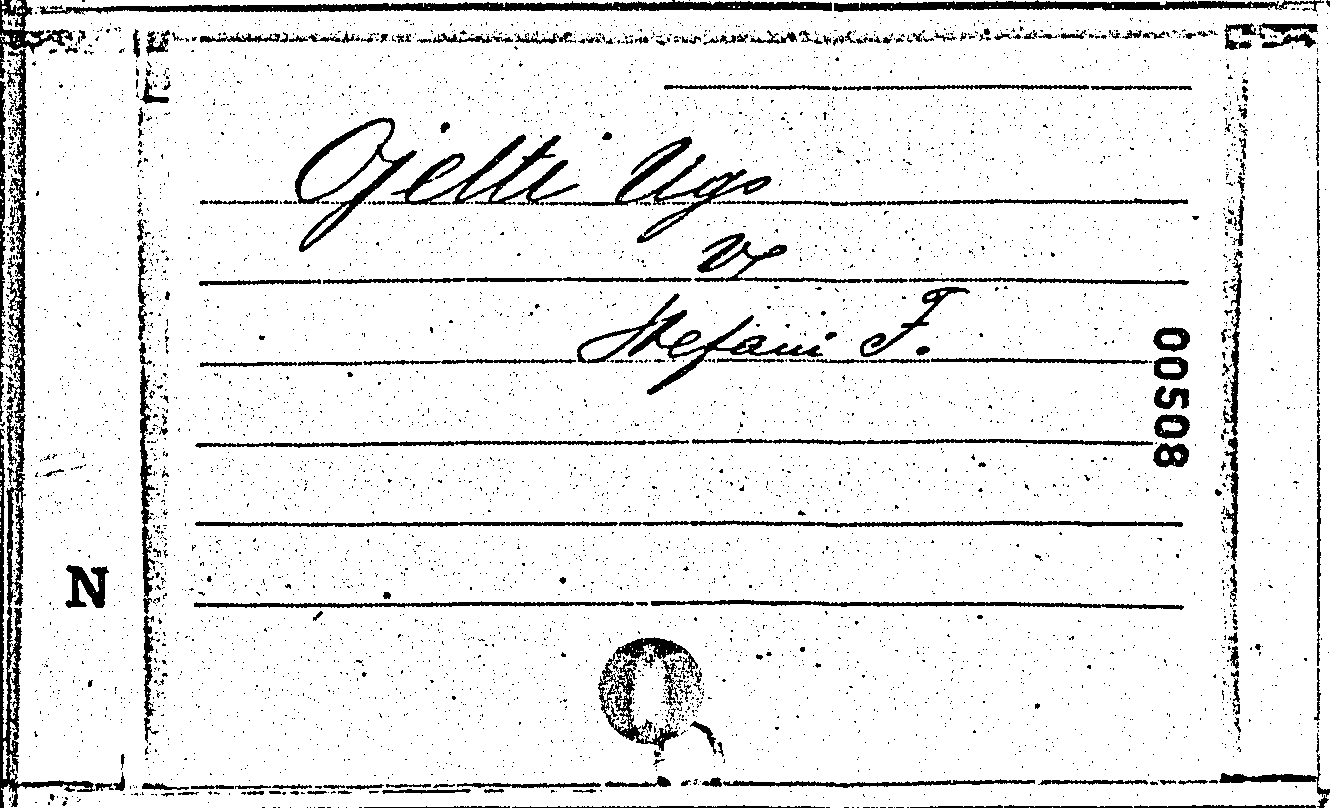 Ojetti Ugo
v
Stefani F.
00508
N